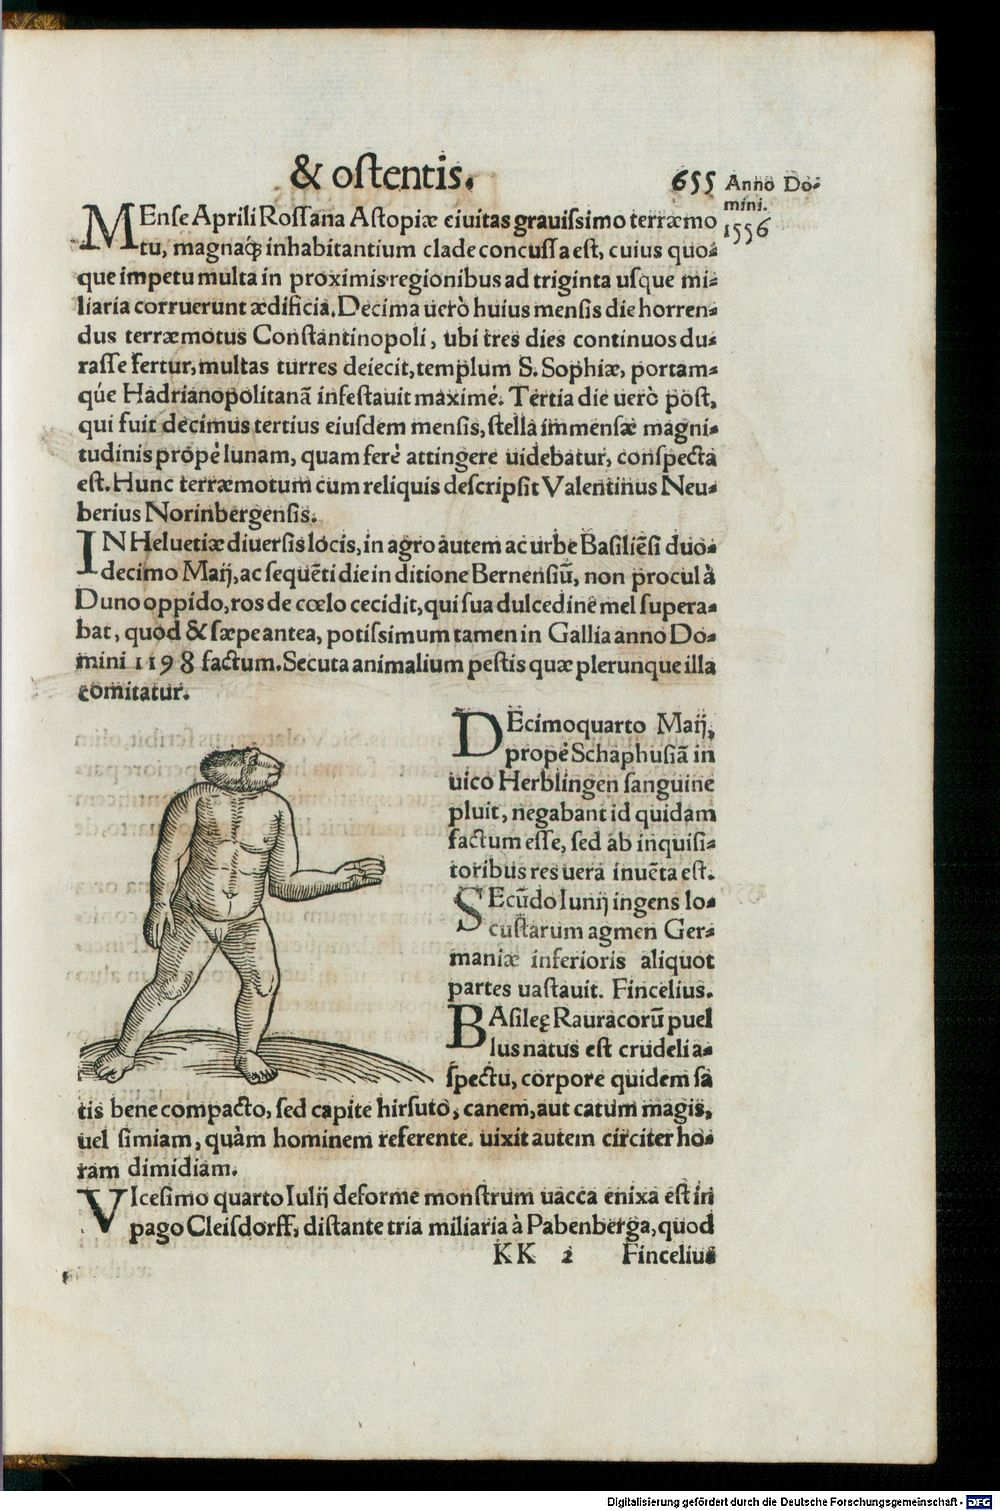 & ostentis.
655 Anno Do-
mini.
1556
MEnse Aprili Rossana Astopiæ ciuitas grauissimo terræmo
tu, magnaq́; inhabitantium clade concussa est, cuius quo-
que impetu multa in proximis regionibus ad triginta usque mi-
liaria corruerunt ædificia. Decima uerò huius mensis die horren-
dus terræmotus Constantinopoli, ubi tres dies continuos du-
rasse fertur, multas turres deiecit, templum S. Sophiæ, portam-
q́ue Hadrianopolitanã infestauit maximè. Tertia die uerò pòst,
qui fuit decimus tertius eiusdem mensis, stella immensæ magni-
tudinis propè lunam, quam ferè attingere uidebatur, conspecta
est. Hunc terræmotum cum reliquis descripsit Valentinus Neu-
berius Norinbergensis.
IN Heluetiæ diuersis locis, in agro autem ac urbe Basiliẽsi duo-
decimo Maij, ac sequẽti die in ditione Bernensiũ, non procul à
Duno oppido, ros de cœlo cecidit, qui sua dulcedine mel supera-
bat, quod & sæpe antea, potissimum tamen in Gallia anno Do-
mini 1198 factum. Secuta animalium pestis quæ plerunque illa
comitatur.
DEcimoquarto Maij,
propè Schaphusiã in
uico Herblingen sanguine
pluit, negabant id quidam
factum esse, sed ab inquisi-
toribus res uera inuẽta est.
SEcũdo Iunij ingens lo-
custarum agmen Ger-
maniæ inferioris aliquot
partes uastauit. Fincelius.
BAsileę Rauracorũ puel
lus natus est crudeli a-
spectu, corpore quidem sa
tis bene compacto, sed capite hirsuto, canem, aut catum magis,
uel simiam, quàm hominem referente. uixit autem circiter ho-
ram dimidiam.
VIcesimo quarto Iulij deforme monstrum uacca enixa est in
pago Cleisdorff, distante tria miliaria à Pabenberga, quod
KK 2 Fincelius
Digitalisierung gefördert durch die Deutsche Forschungsgemeinschaft - DFG